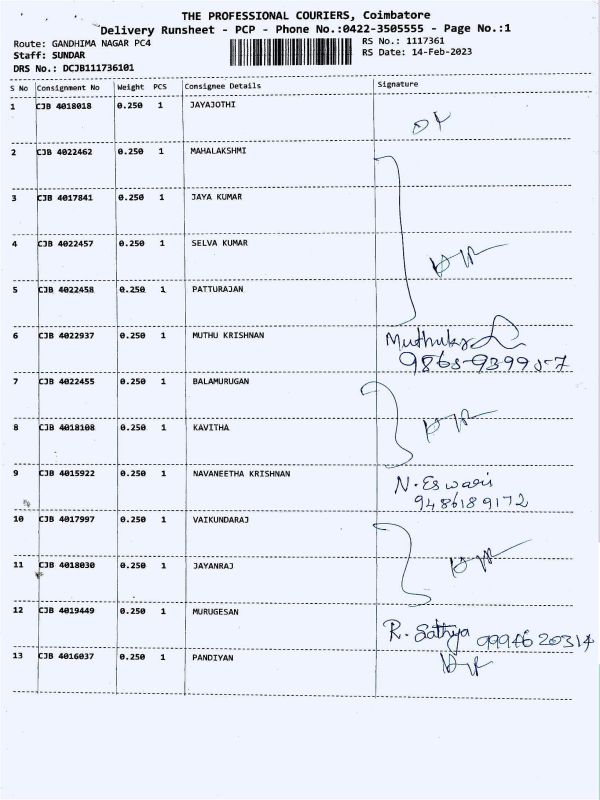 THE PROFESSIONAL COURIERS, Coimbatore
Delivery Runsheet - PCP - Phone No.:0422-3505555 - Page No.:1
Route: GANDHIMA NAGAR PC4 RS No.: 1117361
Staff: SUNDAR RS Date: 14-Feb-2023
DRS No.: DCJB111736101
S No Consignment No Weight PCS Consignee Details Signature
1 CJB 4018018 0.250 1 JAYAJOTHI
2 CJB 4022462 0.250 1 MAHALAKSHMI
3 CJB 4017841 0.250 1 JAYA KUMAR
4 CJB 4022457 0.250 1 SELVA KUMAR
5 CJB 4022458 0.250 1 PATTURAJAN
6 CJB 4022937 0.250 1 MUTHU KRISHNAN
7 CJB 4022455 0.250 1 BALAMURUGAN
8 CJB 4018108 0.250 1 KAVITHA
9 CJB 4015922 0.250 1 NAVANEETHA KRISHNAN N. Eswari
9486189172
10 CJB 4017997 0.250 1 VAIKUNDARAJ
11 CJB 4018030 0.250 1 JAYANRAJ
12 CJB 4019449 0.250 1 MURUGESAN R. Sathya 9994620314
13 CJB 4016037 0.250 1 PANDIYAN